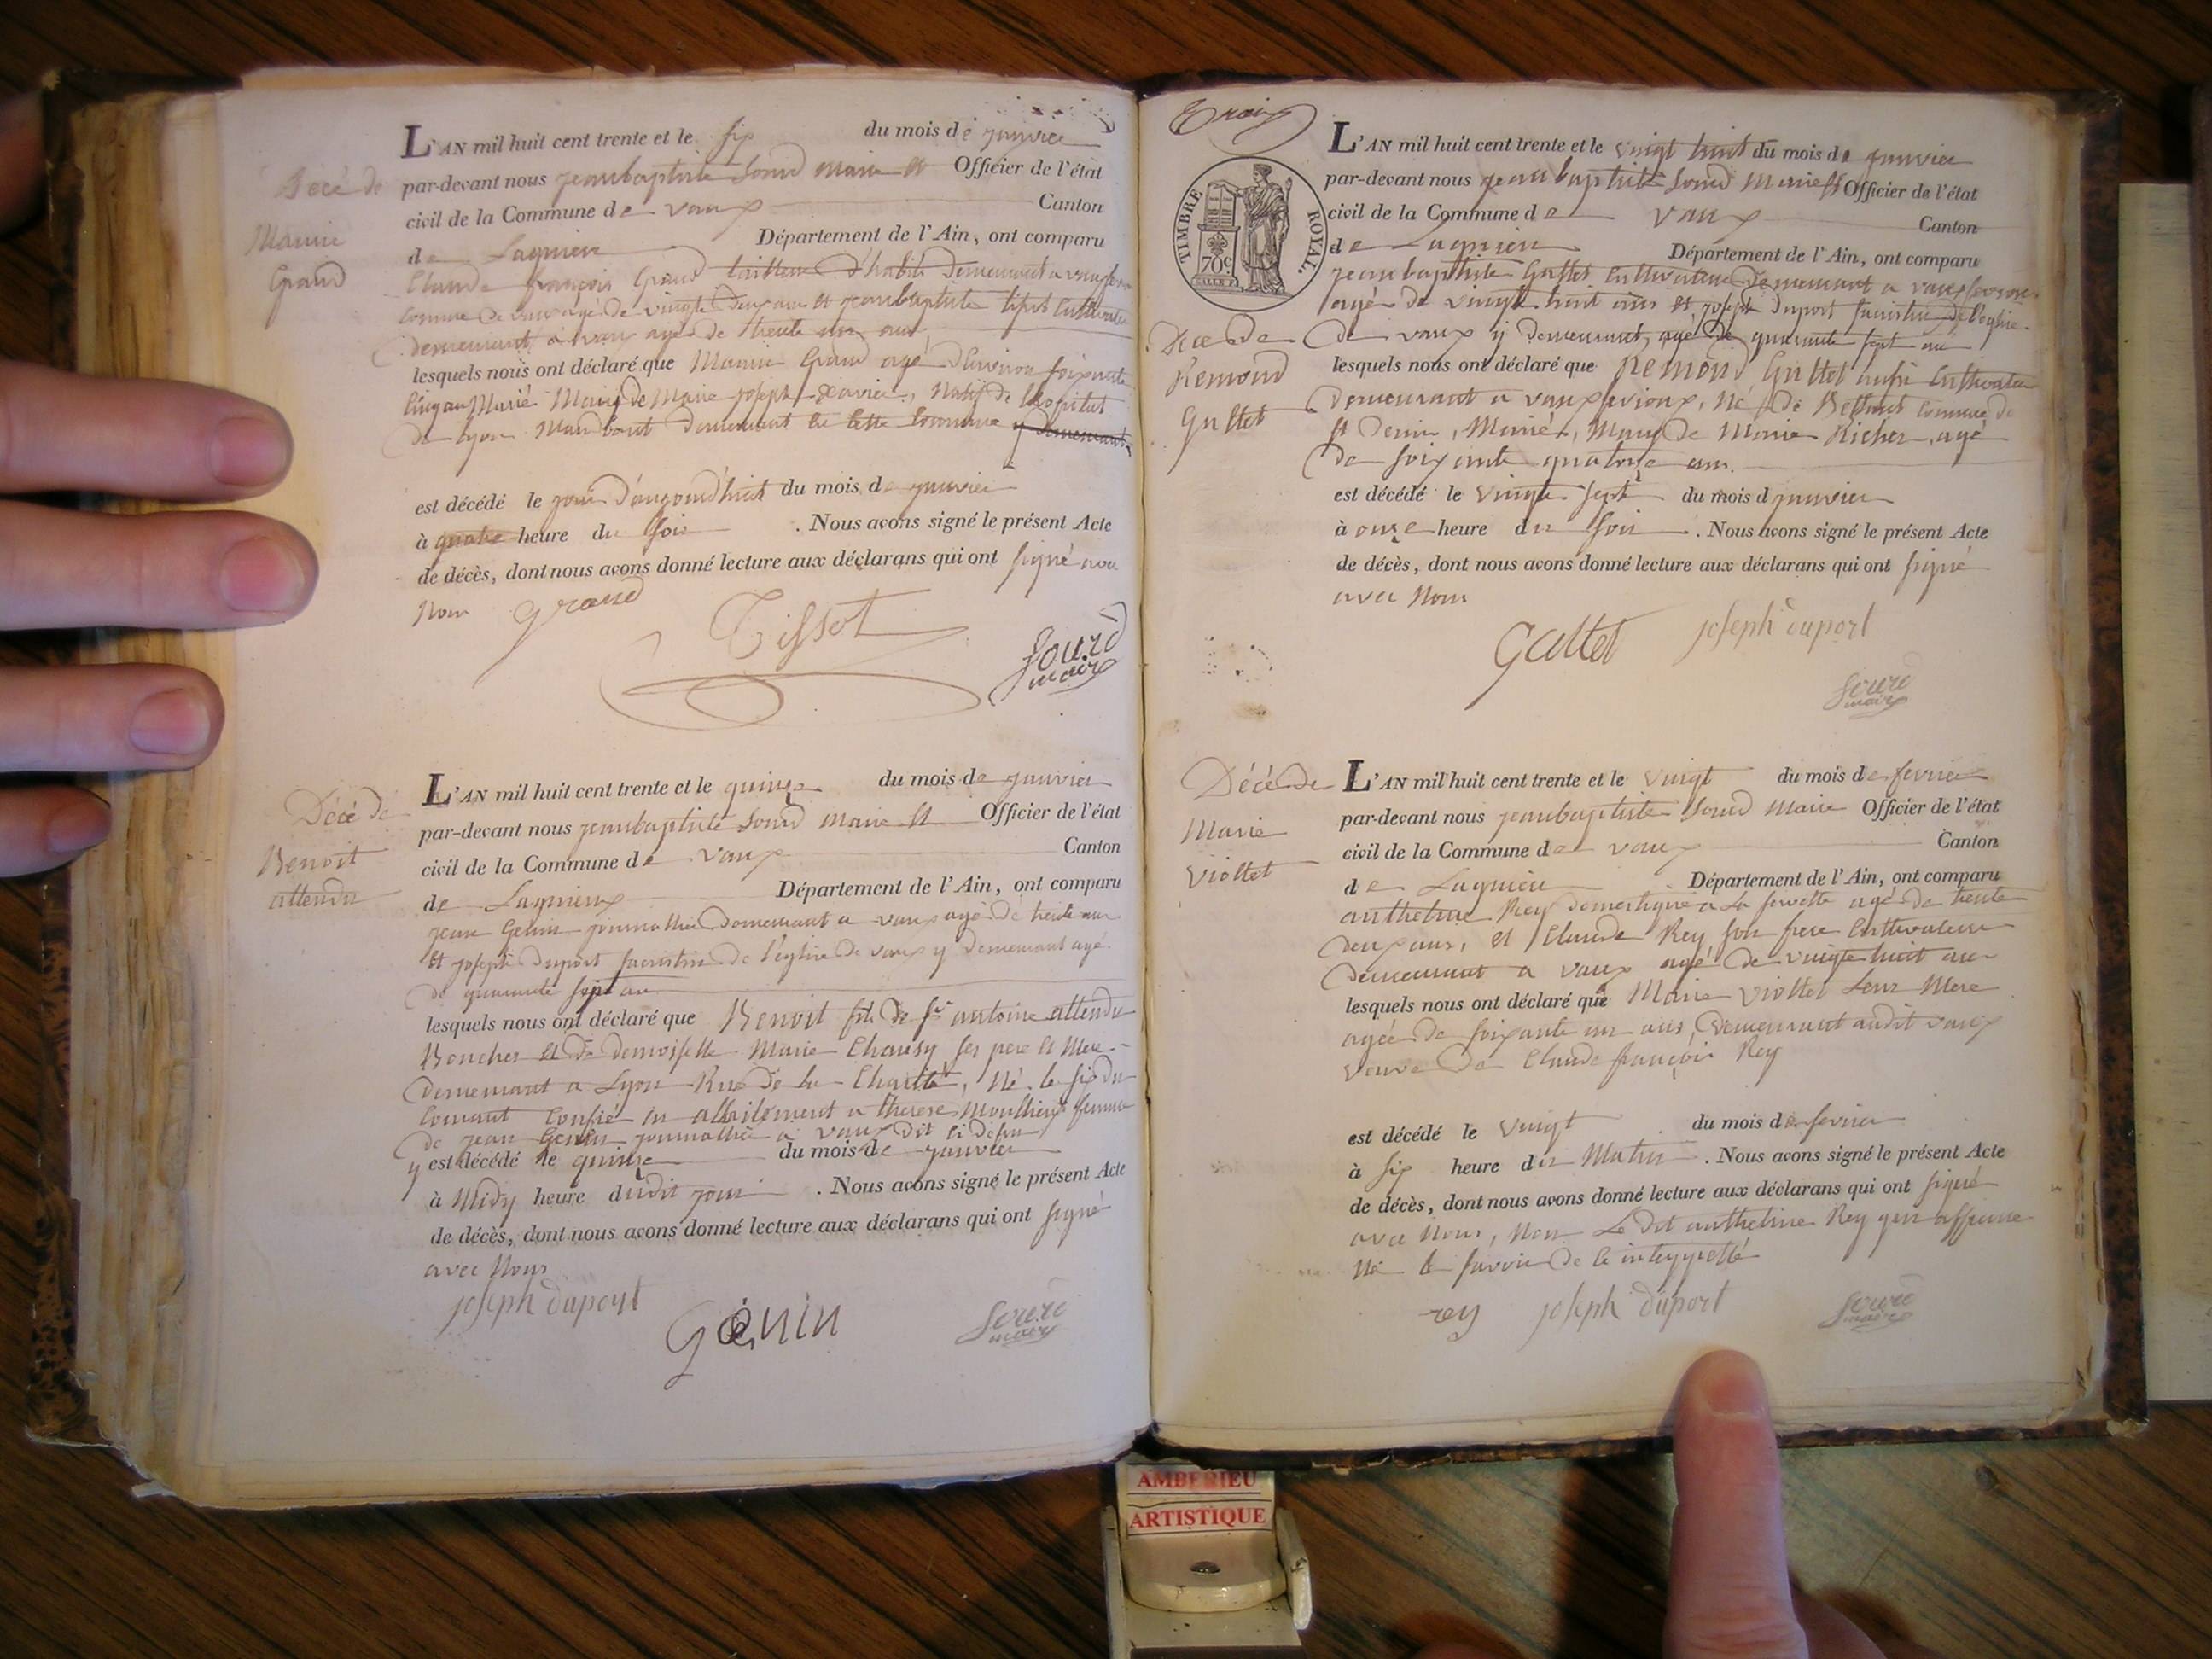 L'AN mil huit cent trente et le six du mois de janvier
par-devant nous jeanbaptiste Sourd maire et Officier de l'état
civil de la Commune de vaux Canton
de Lagnieu Département de l'Ain, ont comparu
Claude françois Grand tailleur d'habits demeurant a vaux
commune de vaux agé de vingt deux ans et jeanbaptiste tissot Cultivateur
demeurant a vaux agé de trente un ans
lesquels nous ont déclaré que Maurice Grand agé d'environ soixante
cinq ans Marié Mary de Marie joseph xavier, natif de l'hopital
de lyon demeurant en cette Commune y demeurant
est décédé le jour d'aujourd'huit du mois de janvier
à quatre heure du soir . Nous avons signé le présent Acte
de décès, dont nous avons donné lecture aux déclarans qui ont signé avec
Nous grand
Tissot
Sourd
maire
Décé de
Maurice
Grand
L'AN mil huit cent trente et le quinze du mois de janvier
par-devant nous jeanbaptiste Sourd maire et Officier de l'état
civil de la Commune de vaux Canton
de Lagnieux Département de l'Ain, ont comparu
jean Genin journallier demeurant a vaux agé de trente ans
et joseph Duport sacristin de l'églize de vaux y demeurant agé
de quarante sept ans
lesquels nous ont déclaré que Benoit fils de sr antoine attendu
Boucher et de demoiselle Marie Charesy ses pere et Mere
demeurant a Lyon Rue de la Charité, Né le six du
Courant Confié en allaitement a therese Moulhiers femme
de jean Genin journallier a vaux dit ci desu
y est décédé le quinze du mois de janvier
à Midy heure dudit jour . Nous avons signé le présent Acte
de décès, dont nous avons donné lecture aux déclarans qui ont signé
avec Nous
joseph duport
Génin
Sourd
maire
Décé de
Benoit
attendu
Trois
TIMBRE ROYAL.
70c
L'AN mil huit cent trente et le vingt huit du mois de janvier
par-devant nous jean baptiste Sourd Maire et Officier de l'état
civil de la Commune de vaux Canton
de Lagnieu Département de l'Ain, ont comparu
jeanbaptiste Guttet Cultivateur demeurant a vaux fevroux
agé de vingt huit ans et joseph Duport sacristin de l'eglise
de vaux y demeurant, agé de quarante sept ans
lesquels nous ont déclaré que Remond Guttet aussi Cultivateur
demeurant a vaux fevroux, Né de Bettant Commune de
st Denis, Marié, Mary de Marie Richer, agé
de soixante quatorze ans.
est décédé le vingt sept du mois d janvier
à onze heure du soir . Nous avons signé le présent Acte
de décès, dont nous avons donné lecture aux déclarans qui ont signé
avec Nous
Guttet
joseph duport
Sourd
maire
Décé de
Remond
Guttet
L'AN mil huit cent trente et le vingt du mois de fevrier
par-devant nous jeanbaptiste Sourd Maire Officier de l'état
civil de la Commune de vaux Canton
de Lagnieu Département de l'Ain, ont comparu
anthelme Rey domestique a La servette agé de trente
deux ans, et Claude Rey son frere Cultivateur
demeurant a vaux agé de vingt huit ans
lesquels nous ont déclaré que Marie Viottet Leur Mere
agée de soixante un ans, demeurant audit vaux
veuve de Claude françois Rey
est décédé le vingt du mois de fevrier
à six heure du Matin . Nous avons signé le présent Acte
de décès, dont nous avons donné lecture aux déclarans qui ont signé
avec Nous, Non Le dit anthelme Rey qui affirme
Ne le savoir de ce interppellé
rey
joseph duport
Sourd
maire
Décé de
Marie
Viottet
AMBERIEU
ARTISTIQUE